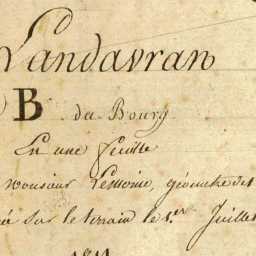 Landavran
B du Bourg
En une feuille
Monsieur Lemoine, géometre des
sur le terrain le 1.er Juillet